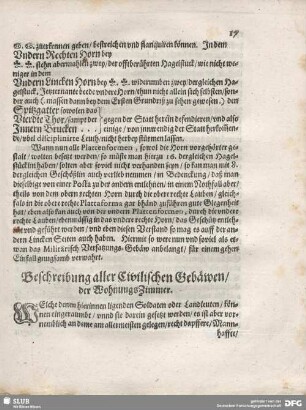 17
zuerkennen geben / bestreichen und flanquiren können. In dem
Undern Rechten Horn bey
stehn abermahln zwey / der offtberührten Hagelstuck / wie nicht we-
niger in dem
Undern Lincken Horn bey widerumben zwey dergleichen Ha-
gelstuck / Jetzernante beede undere Horn /
der auch
Spitzgatter sowolen das
Vierdte Thor / sampt der einige / von der Statt herein defendiren / und also
Innern Brucken jenige / von innen
de / vbel disciplinirte Leuth / nicht herbey stürmen lassen.
Wann nun alle Plattenformen / sowol die Horn vorgehörter ge-
stalt / wolten besetzt werden / so müßte man hierzu 16. dergleichen Hagel-
stuck in haben / sofern aber sovil nicht vorhanden seyn / so kan man mit 8.
dergleichen Geschößlin auch verlieb nemmen / in Bedenckung / daß man
dieselbige von einer Posta zu der andern entlehnen / in einem Nothfall aber /
theils von dem obern rechten Horn durch die obere rechte Lauben / gleich-
falls in die obere rechte Plattaforma gar bhänd zuführen gute Gelegenheit
hat / eben also kan auch von der undern Plattaformen / durch die undere
rechte Lauben / ebenmässig in das undere rechte Horn / das Geschütz entleh-
net und geführet werden / und eben diesen Verstand so mag es auff der an-
dern Lincken Seiten auch haben. Hiermit so were nun und sovil als et-
wan das Militärisch Versatzungs-Gebäw anbelangt / für einem gehen
Einfall gnugsamb verwahrt.
Beschreibung aller Civilischen Gebäwen /
der Wohnungs Zimmer.
Welche denen hierinnen ligenden Soldaten oder Landleuten / kön-
nen eingeraumbt / unnd sie darein gesetzt werden / es ist aber vor-
nemblich an deme am allermeisten gelegen / recht dapffere / Mann-
haffte /
SLUB
Wir führen Wissen.
DFG